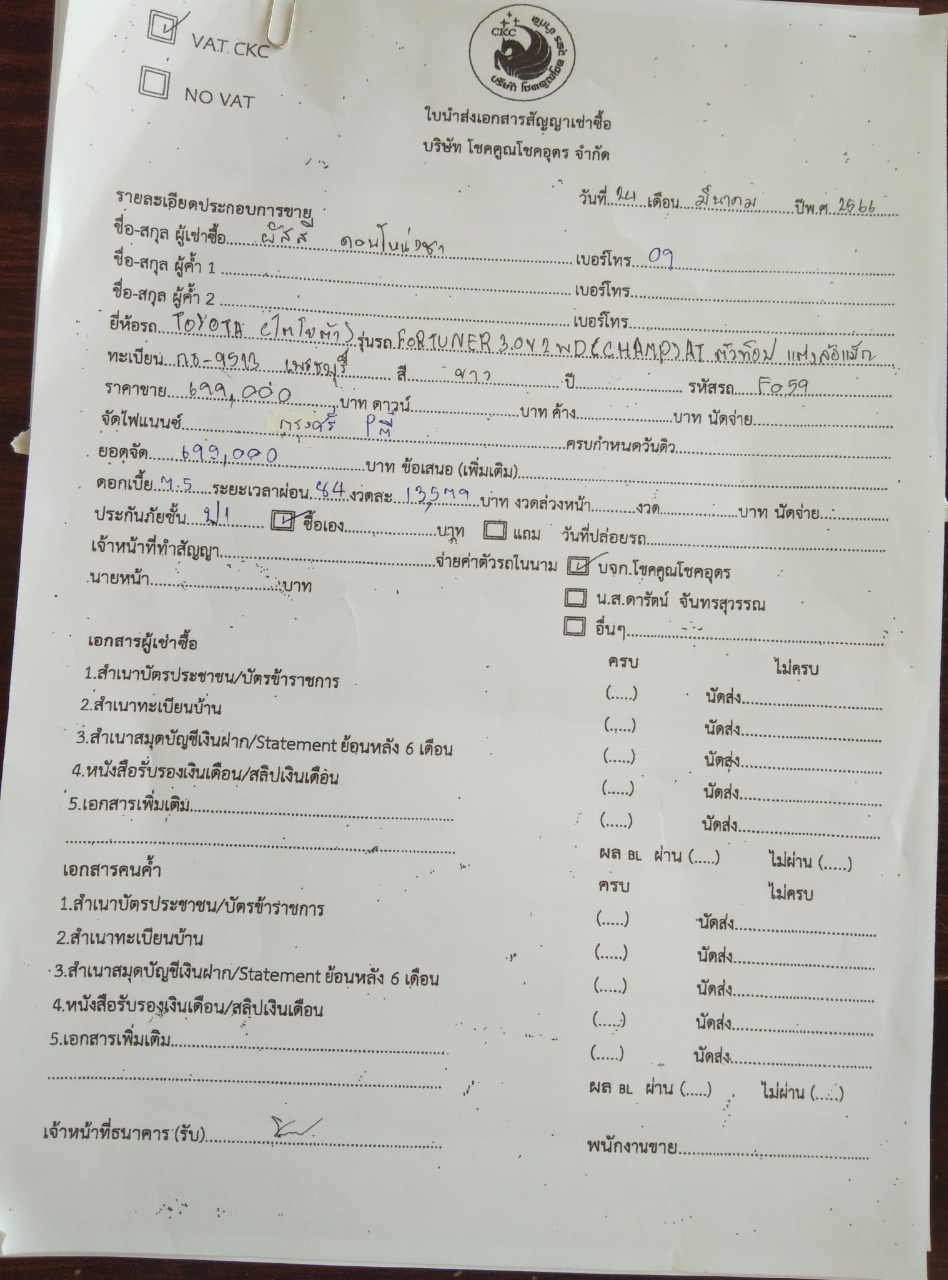 VAT. CKC
NO VAT
CKC
บริษัท โชคคูณโชค อุดร จำกัด
ใบนำส่งเอกสารสัญญาเช่าซื้อ
บริษัท โชคคูณโชคอุดร จำกัด
วันที่...24...เดือน....มีนาคม.......ปีพ.ศ. 2566
รายละเอียดประกอบการขาย
ชื่อ-สกุล ผู้เช่าซื้อ.............เบอร์โทร...09......
ชื่อ-สกุล ผู้ค้ำ 1 .............เบอร์โทร.............
ชื่อ-สกุล ผู้ค้ำ 2 .............เบอร์โทร.............
ยี่ห้อรถ...TOYOTA (โตโยต้า) รุ่นรถ FORTUNER 3.0V 2WD (CHAMP) AT ตัวท็อป แต่งล้อแม็ก
ทะเบียน กธ-9513 เพชรบุรี.....สี......ขาว......ปี...............รหัสรถ....Fo59......
ราคาขาย....699,000.......บาท ดาวน์.............บาท ค้าง.............บาท นัดจ่าย.............
จัดไฟแนนซ์.......กรุงศรี.......ครบกำหนดวันดิว.............
ยอดจัด.....699,000.......บาท ข้อเสนอ (เพิ่มเติม).............
ดอกเบี้ย 7.5 ....ระยะเวลาผ่อน 84 งวดละ 13,579 บาท งวดล่วงหน้า.........งวด.............บาท นัดจ่าย........
ประกันภัยชั้น...ป1....... ซื้อเอง.............บาท แถม วันที่ปล่อยรถ.............
เจ้าหน้าที่ทำสัญญา.............จ่ายค่าตัวรถในนาม บจก.โชคคูณโชคอุดร
นายหน้า.............บาท
น.ส.ดารัตน์ จันทรสุวรรณ
อื่นๆ.............
เอกสารผู้เช่าซื้อ ครบ ไม่ครบ
1.สำเนาบัตรประชาชน/บัตรข้าราชการ (.....) นัดส่ง.............
2.สำเนาทะเบียนบ้าน (.....) นัดส่ง.............
3.สำเนาสมุดบัญชีเงินฝาก/Statement ย้อนหลัง 6 เดือน (.....) นัดส่ง.............
4.หนังสือรับรองเงินเดือน/สลิปเงินเดือน (.....) นัดส่ง.............
5.เอกสารเพิ่มเติม............. (.....) นัดส่ง.............
ผล BL ผ่าน (.....) ไม่ผ่าน (.....)
เอกสารคนค้ำ ครบ ไม่ครบ
1.สำเนาบัตรประชาชน/บัตรข้าราชการ (.....) นัดส่ง.............
2.สำเนาทะเบียนบ้าน (.....) นัดส่ง.............
3.สำเนาสมุดบัญชีเงินฝาก/Statement ย้อนหลัง 6 เดือน (.....) นัดส่ง.............
4.หนังสือรับรองเงินเดือน/สลิปเงินเดือน (.....) นัดส่ง.............
5.เอกสารเพิ่มเติม............. (.....) นัดส่ง.............
ผล BL ผ่าน (.....) ไม่ผ่าน (.....)
เจ้าหน้าที่ธนาคาร (รับ)............. พนักงานขาย.............